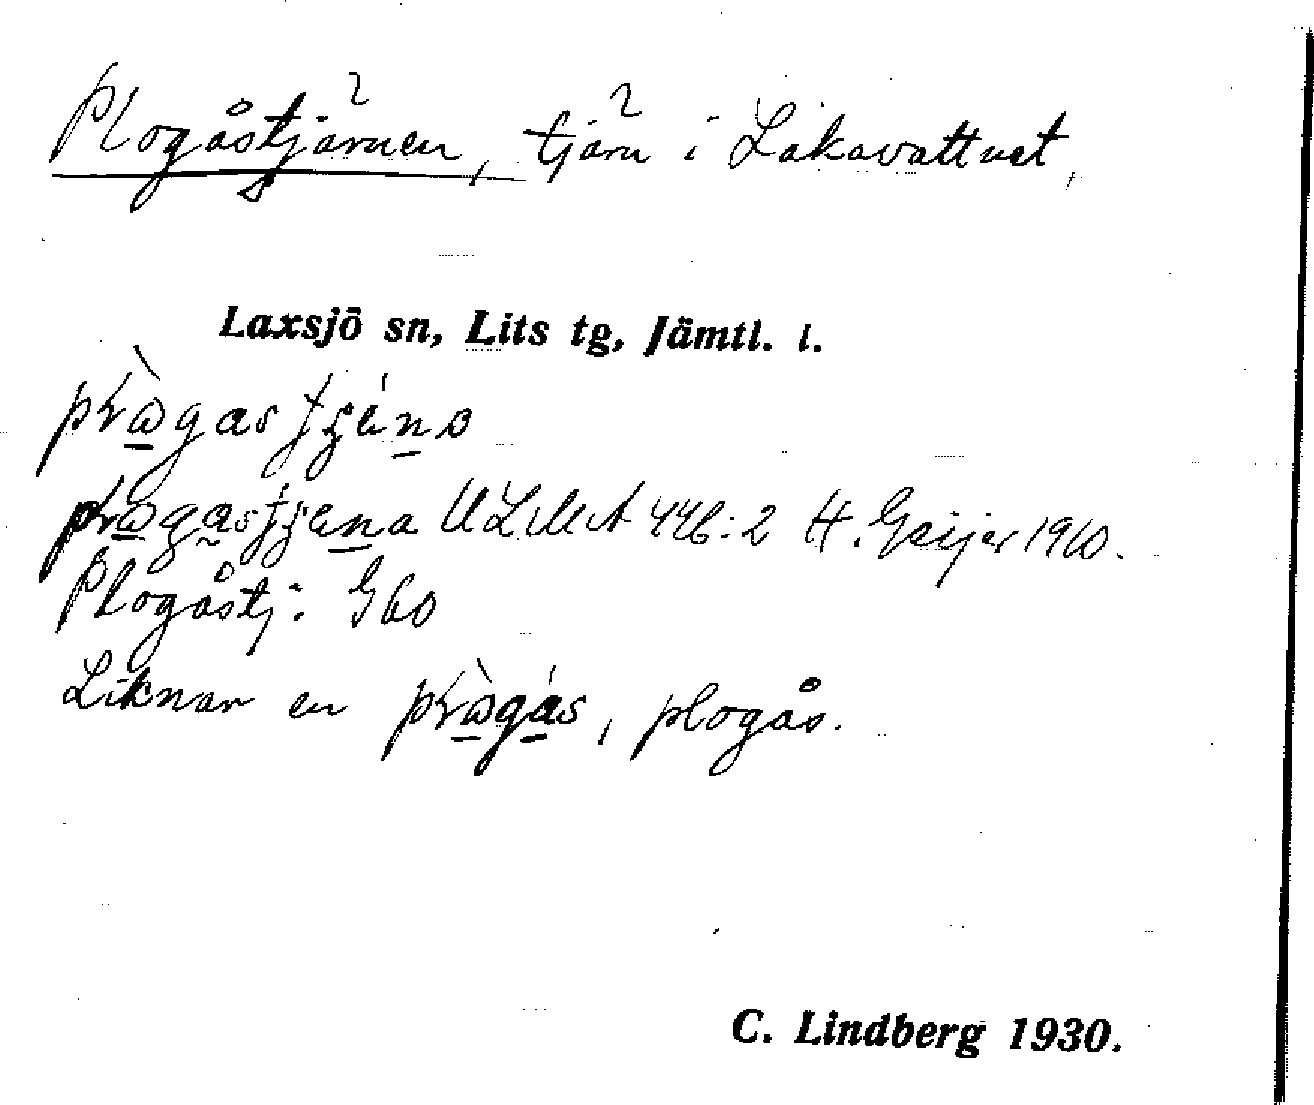 Plogåstjärnen, tjärn i Lakavattnet,
Laxsjö sn, Lits tg, Jämtl. l.
ULMA 446:2 H. Geijer 1910.
Plogåstj: Gbo
Liknar en , plogås.
C. Lindberg 1930.